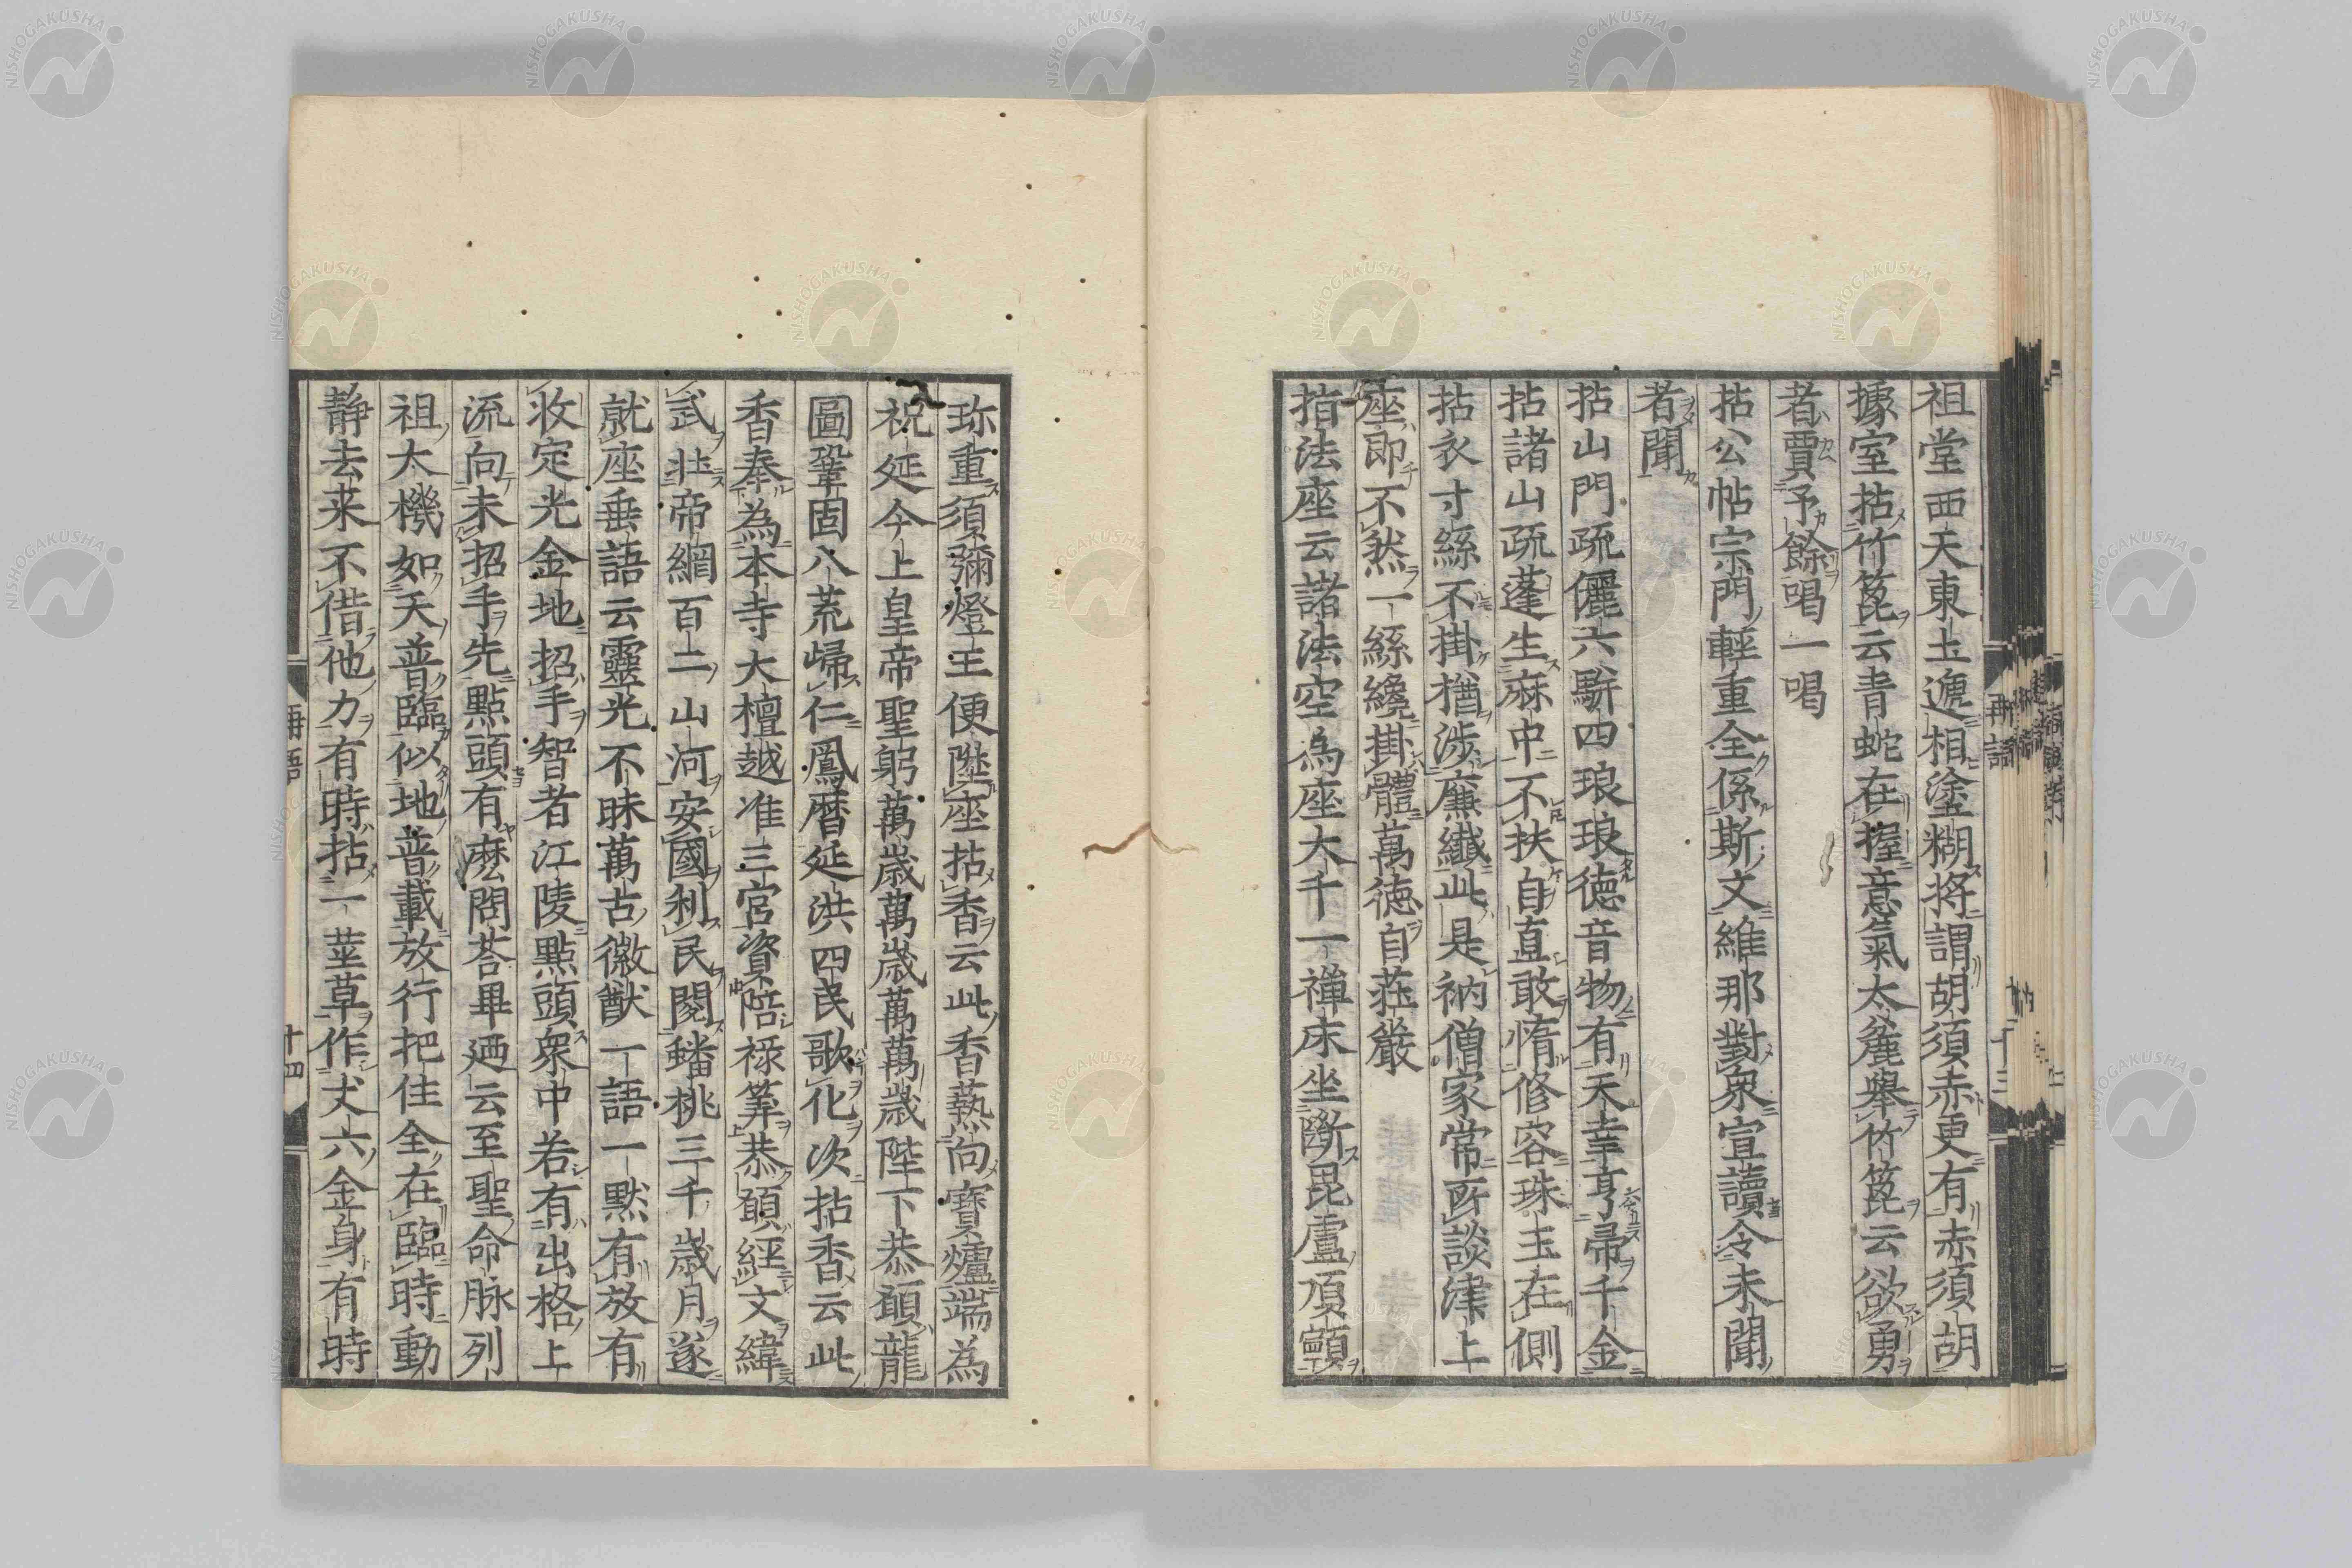 祖堂西天東土遞相塗糊將謂胡須赤更有赤須胡
據室拈竹篦云青蛇在握意氣太麁舉竹篦云欲勇
者賈予餘喝一喝
拈公帖宗門輕重全係斯文維那對衆宣讀令未聞
者聞
拈山門疏儷六駢四琅琅德音物有天幸亨帚千金
拈諸山疏蓬生麻中不扶自直敢惰修容珠玉在側
拈衣寸絲不掛猶涉廉纖此是衲僧家常所談津上
座即不然一絲纔掛體萬德自莊嚴
指法座云諸法空為座大千一禪床坐斷毘盧頂𩕳
珎重須彌燈王便陞座拈香云此香爇向寶爐端為
祝延今上皇帝聖躬萬歲萬歲萬萬歲陛下恭願龍
圖鞏固八荒歸仁鳳曆延洪四民歌化次拈香云此
香奉為本寺大檀越准三宮資陪祿筭恭願經文緯
武壯帝網百二山河安國利民閱蟠桃三千歲月遂
就座垂語云靈光不昧萬古徽猷一語一默有放有
收定光金地招手智者江陵點頭衆中若有出格上
流向未招手先點頭有麽問荅畢廼云至聖命脉列
祖大機如天普臨似地普載放行把住全在臨時動
靜去来不借他力有時拈一莖草作丈六金身有時
再語
十四
再語
十三